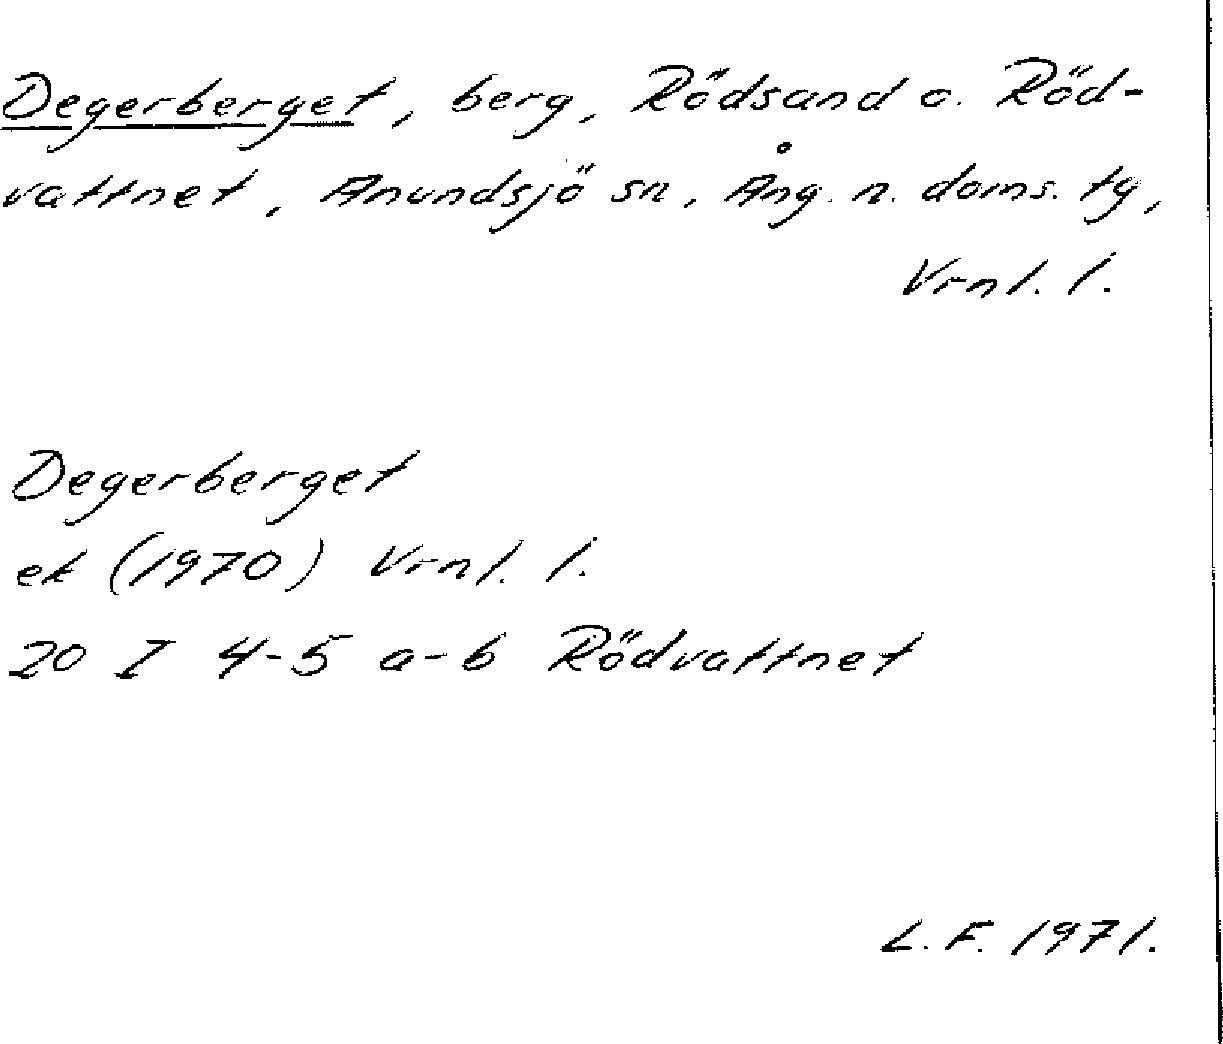 Degerberget, berg, Rödsand o. Röd-
vattnet, Anundsjö sn, Ång. n. doms. tg,
Vrnl. l.
Degerberget
ek (1970) Vrnl. l.
20 I 4-5 a-b Rödvattnet
L. F. 1971.